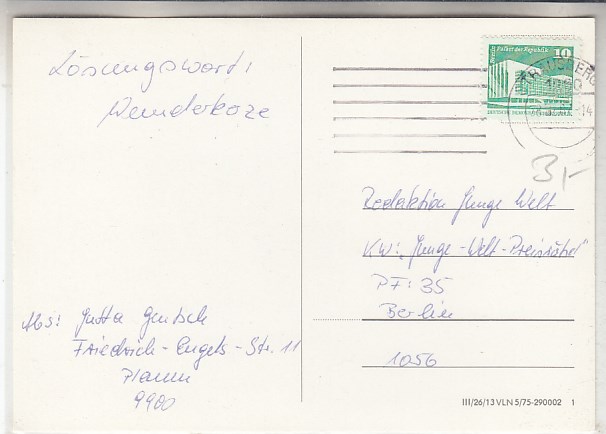 Lösungswort:
Wunderkerze
Berlin, Palast der Republik 10
3,-
Redaktion Junge Welt
KW: "Junge-Welt-Preisrätsel"
PF: 35
Berlin
1056
Abs: Jutta Gentsch
Friedrich-Engels-Str. 11
Plauen
9900
III/26/13 VLN 5/75-290002 1